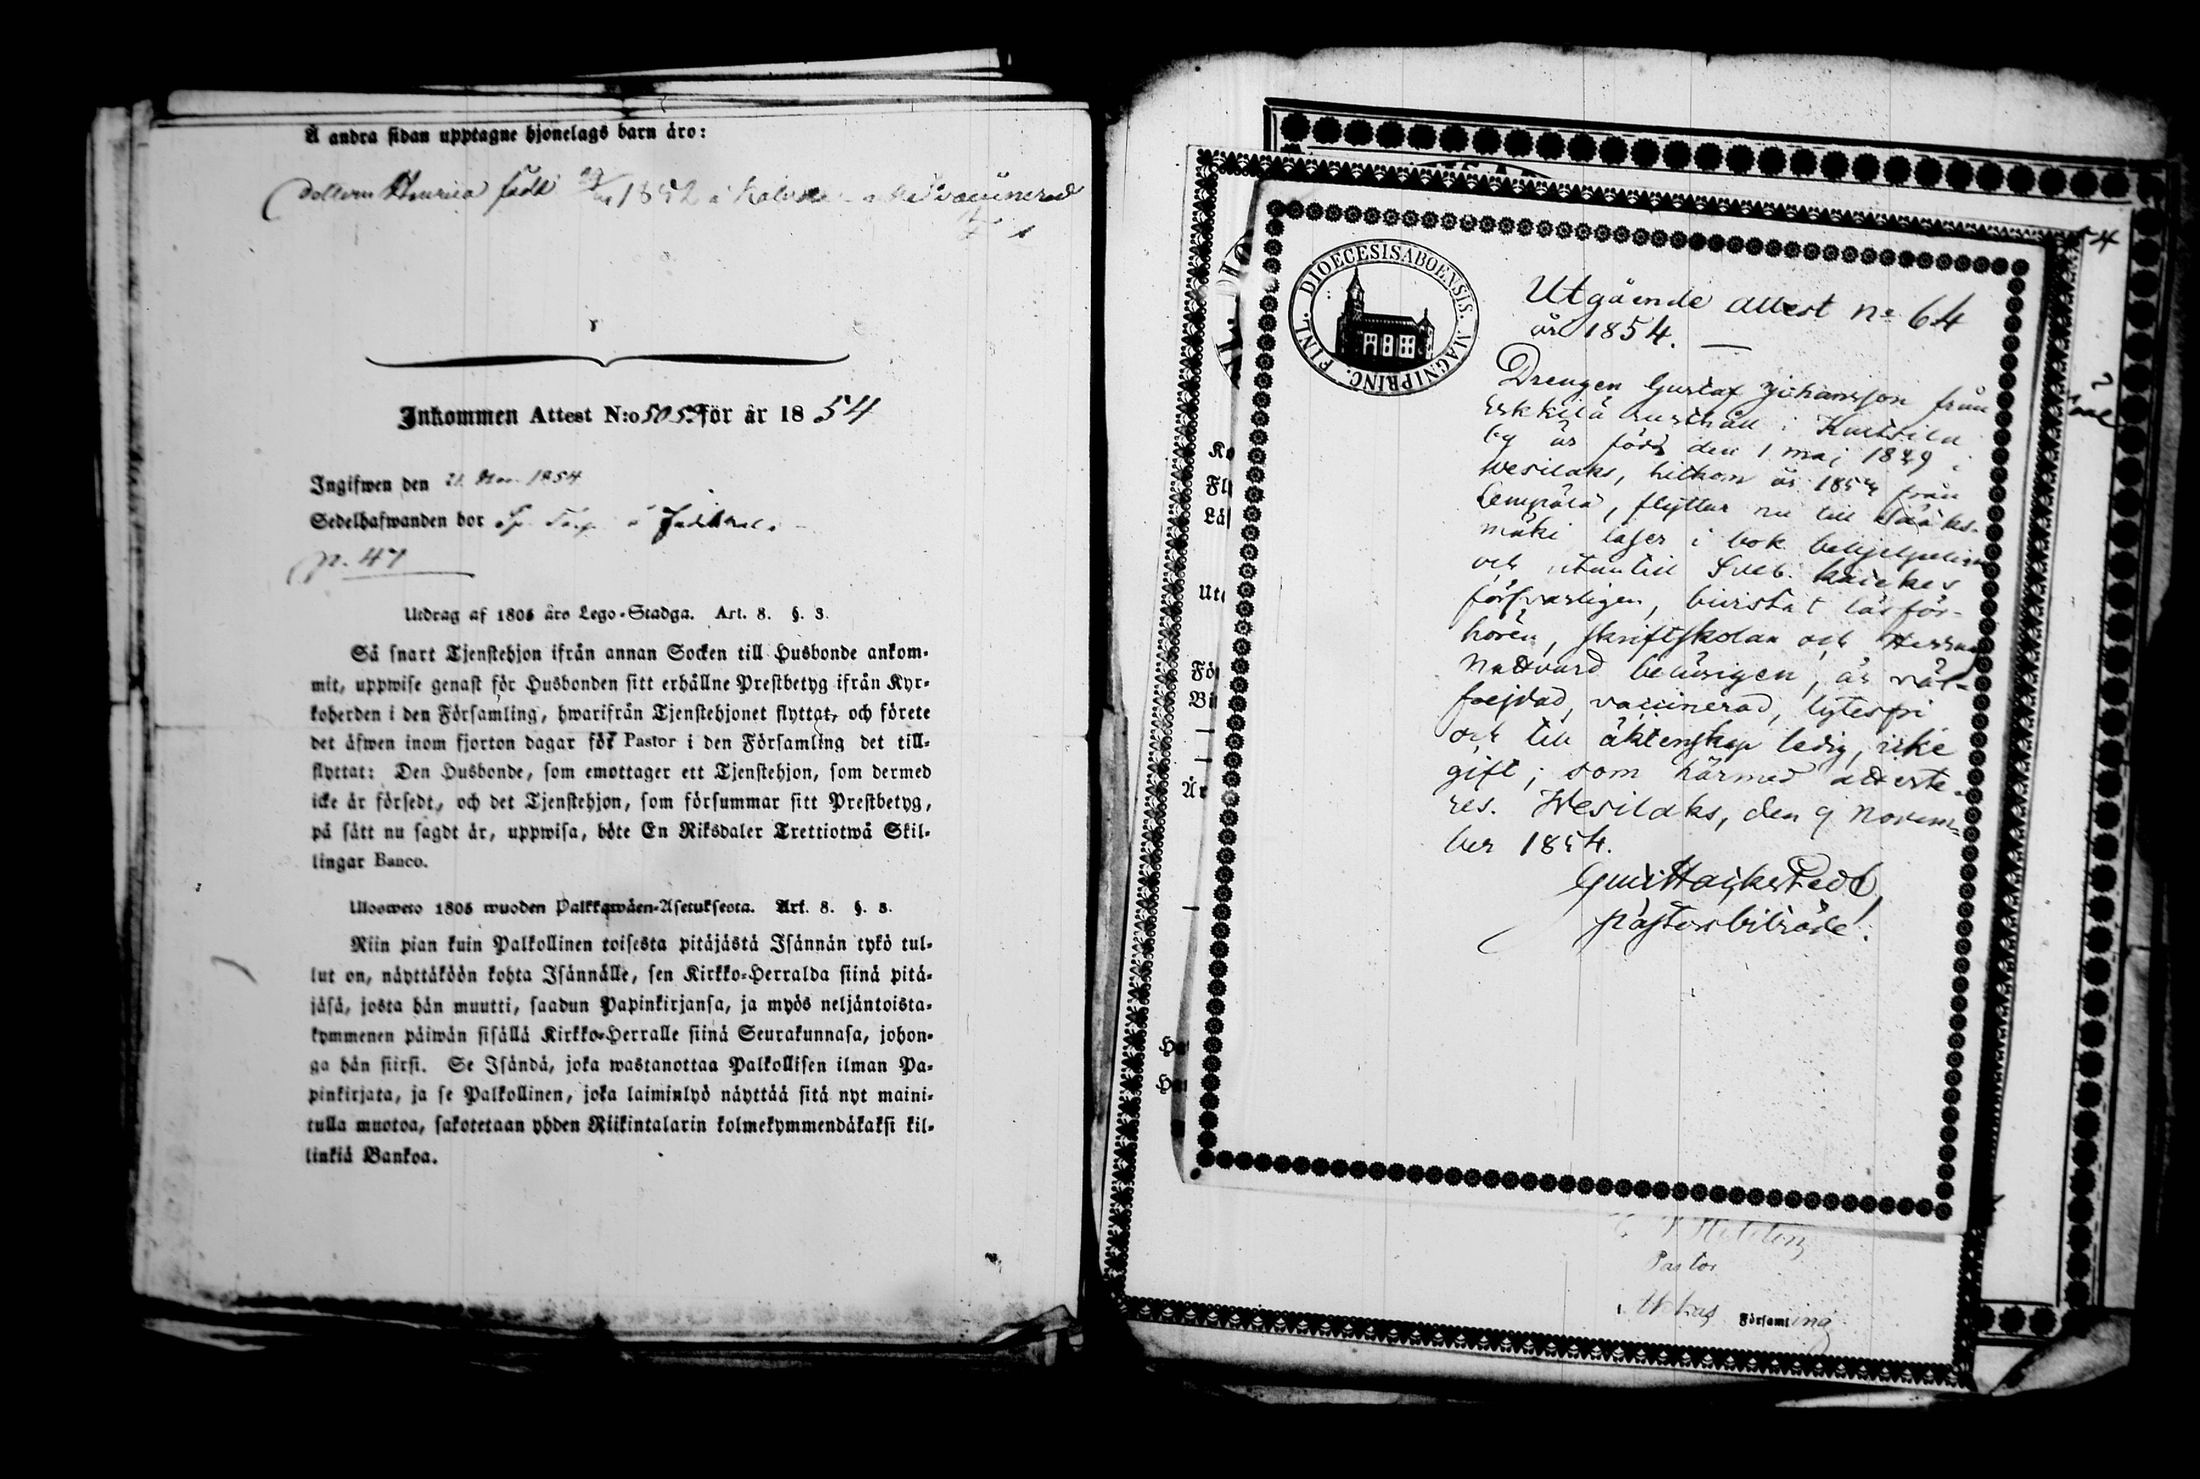 Å andra sidan upptagne hjonelags barn äro:
dottern Henrica född 1852 i vaccinerad
Inkommen Attest N:o 50 59 för år 1854
Ingifwen den 21 Nov. 1854
Sedelhafwanden bor
p. 47
Utdrag af 1805 års Lego-Stadga. Art. 8. §. 3.
Så snart Tjenstehjon ifrån annan Socken till Husbonde ankom-
mit, uppwise genast för Husbonden sitt erhållne Prestbetyg ifrån Kyr-
koherden i den Församling, hwarifrån Tjenstehjonet flyttat, och förete
det äfwen inom fjorton dagar för Pastor i den Församling det till-
flyttat: Den Husbonde, som emottager ett Tjenstehjon, som dermed
icke är försedt, och det Tjenstehjon, som försummar sitt Prestbetyg,
på sätt nu sagdt är, uppwisa, böte En Riksdaler Trettiotwå Skil-
lingar Banco.
Ulosweto 1805 wuoden Palkkawäen-Asetuksesta. Art. 8. §. 3.
Niin pian kuin Palkollinen toisesta pitäjästä Isännän tykö tul-
lut on, näyttäköön kohta Isännälle, sen Kirkko-Herralda siinä pitä-
jäsä, josta hän muutti, saadun Papinkirjansa, ja myös neljäntoista-
kymmenen päiwän sisällä Kirkko-Herralle siinä Seurakunnasa, johon-
ga hän siirsi. Se Isändä, joka wastanottaa Palkollisen ilman Pa-
pinkirjata, ja se Palkollinen, joka laiminlyö näyttää sitä nyt maini-
tulla muotoa, sakotetaan yhden Riikintalarin kolmekymmendäkaksi kil-
linkiä Bankoa.
FINL. DIOECESIS ABOENSIS. MAGNI PRINC.
Utgående attest No 64
år 1854.
Drengen Gustaf Johansson från
Erkkilä rusthåll i Kurisila
by är född den 1 maj 1829 i
Wesilaks, hitkom år 1854 från
Lempälä, flyttar nu till Sääks-
mäki läser i bok behjelpeligen
och utantill Sveb. käickes
försvarligen, bivistat läsför-
hören, skriftskolan och Herrans
Nattvard behörigen, är väl-
frejdad, vaccinerad, lytesfri
och till äktenskap ledig, icke
gift; som härmed atteste-
res. Wesilaks, den 9 Novem-
ber 1854.
pastorsbiträde!
Pastor
Församling